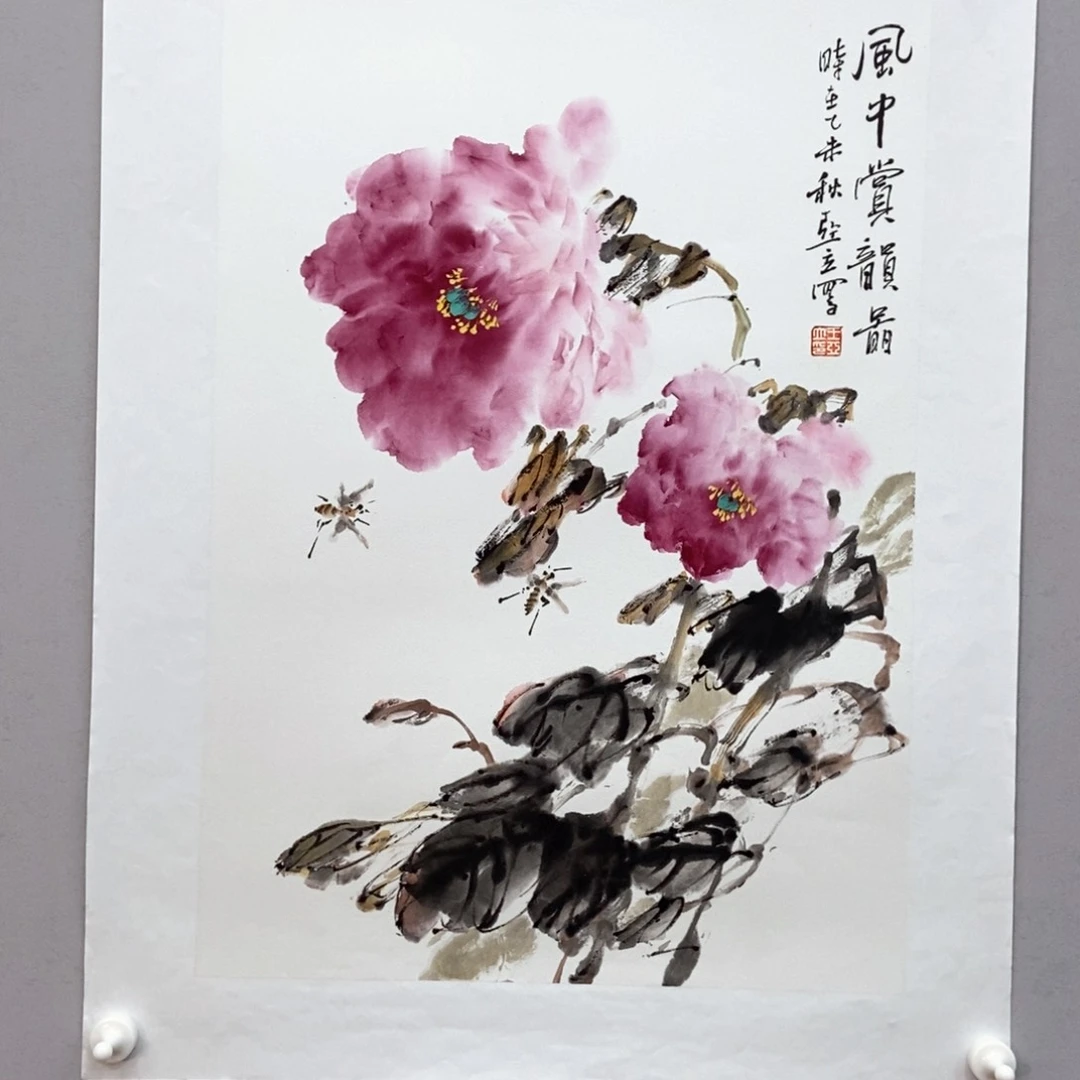 風中賞韻
時在乙未秋亞立寫
王亞立